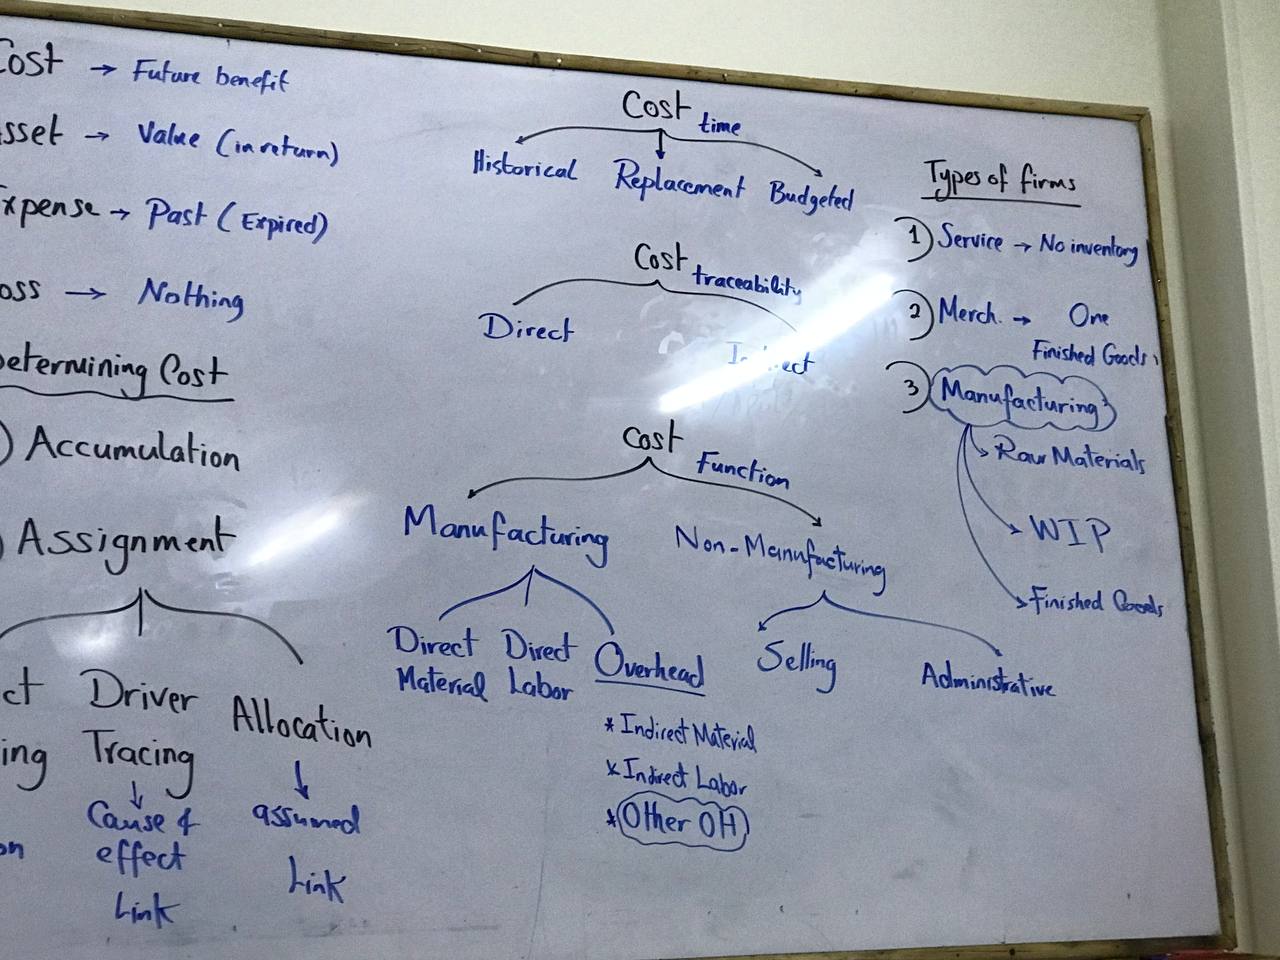 Cost → Future benefit
Asset → Value (in return)
Expense → Past (Expired)
Loss → Nothing
Determining Cost
) Accumulation
) Assignment
Driver
Tracing
↓
Cause &
effect
Link
Allocation
↓
assumed
Link
Cost time
Historical Replacement Budgeted
Cost traceability
Direct
Cost Function
Manufacturing Non-Manufacturing
Direct Material
Direct Labor
Overhead
* Indirect Material
* Indirect Labor
* Other OH
Selling
Administrative
Types of firms
1) Service → No inventory
2) Merch. → One
Finished Goods
3) Manufacturing
Raw Materials
WIP
Finished Goods